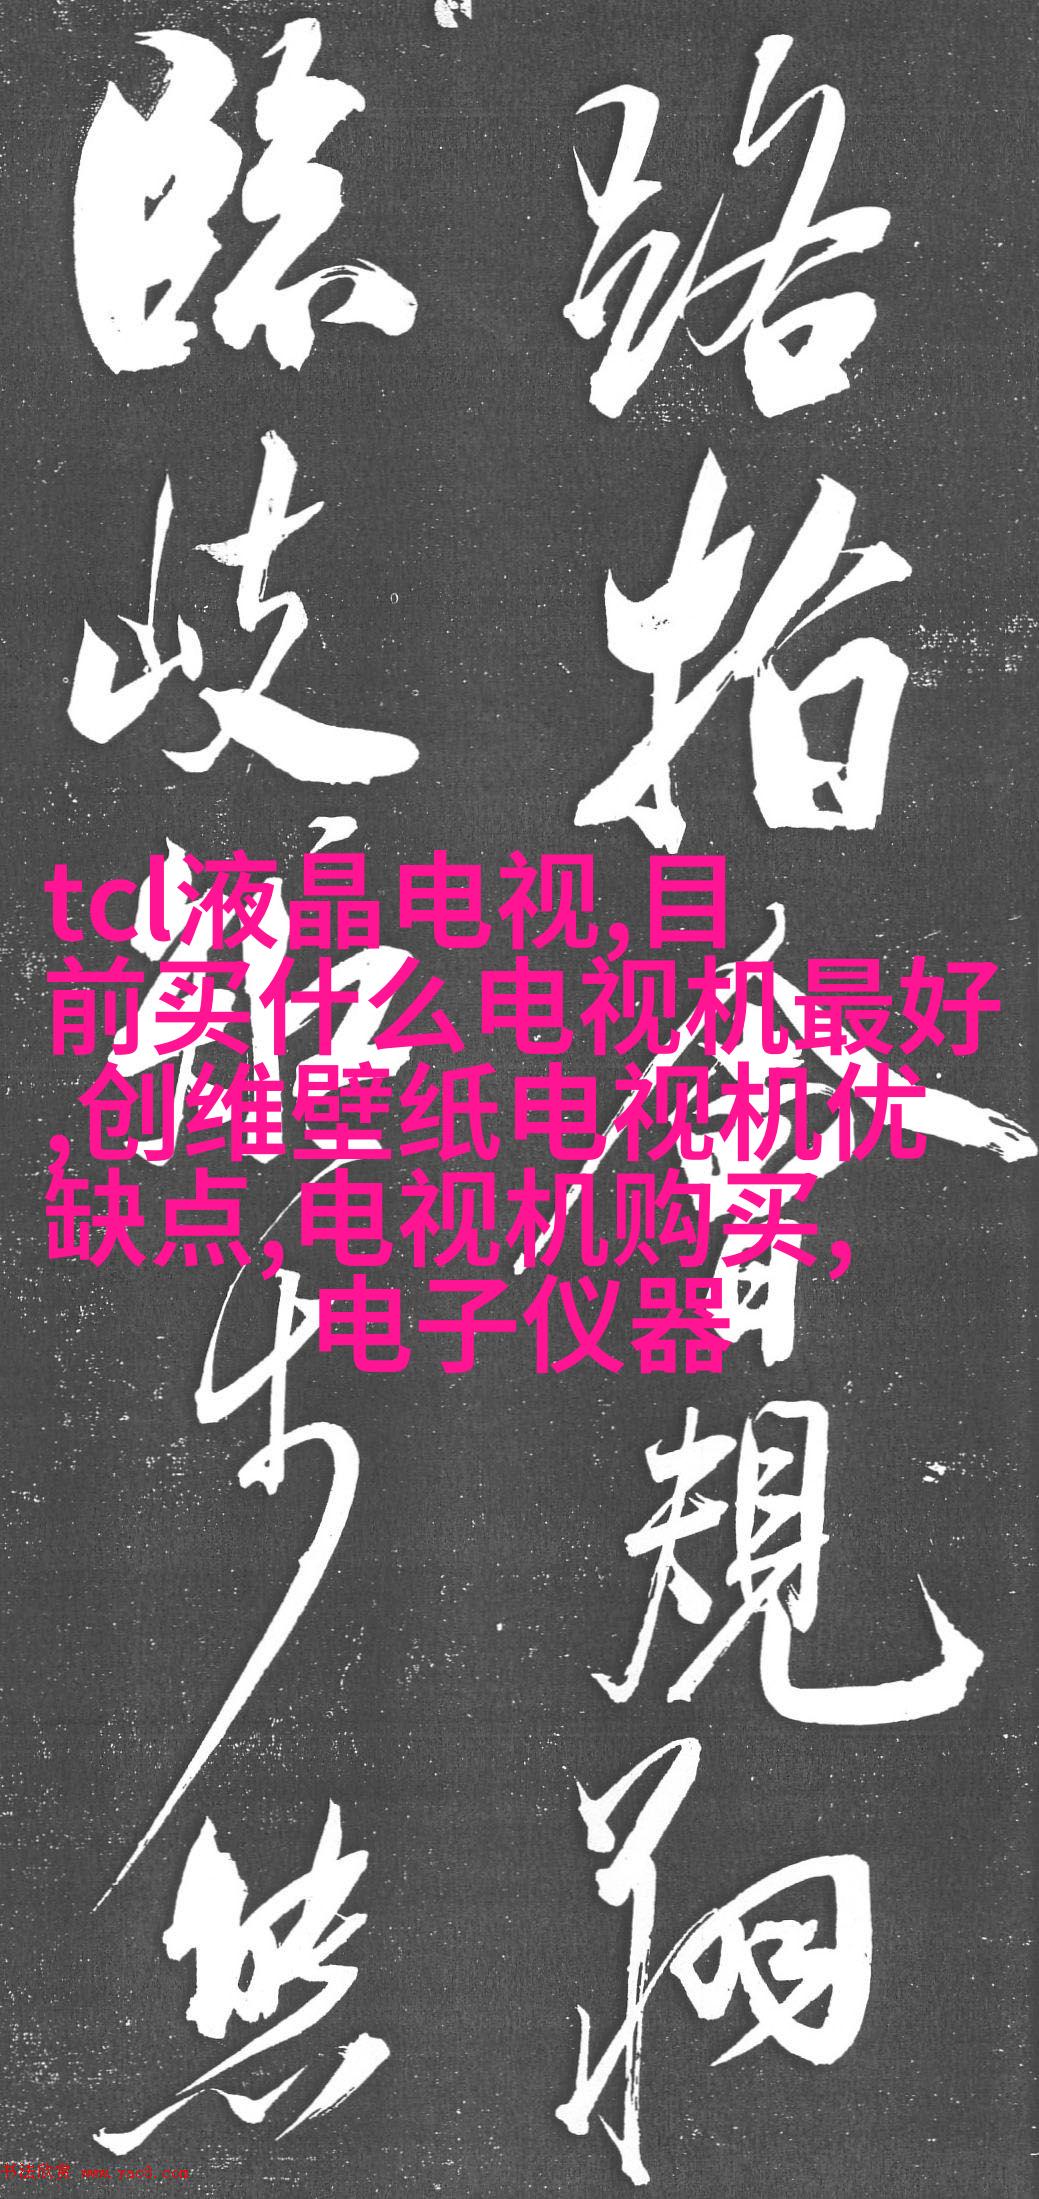 路指金台規翔
臨岐矩步無
tcl液晶电视,目
前买什么电视机最好
,创维壁纸电视机优
缺点,电视机购买,
电子仪器
书法欣赏 www.yac8.com